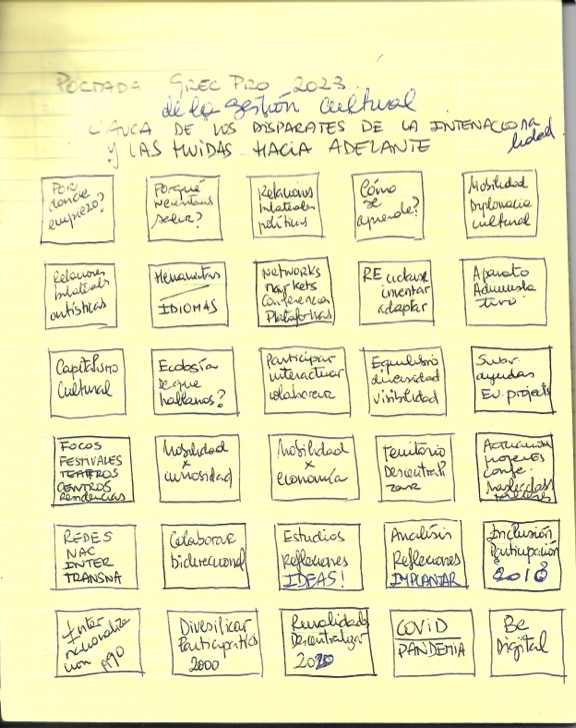 PORTADA GREC PRO 2023.
de la gestión cultural
L'AUCA DE LOS DISPARATES DE LA INTENACIONA
lidad
Y LAS HUIDAS HACIA ADELANTE
Por
donde
empiezo?
Porqué
necesitamos
salir?
Relaciones
bilaterales
políticas
Cómo
se
aprende?
Mobilidad
Diplomacia
cultural
Relaciones
bilaterales
artísticas
Herramientas
IDIOMAS
NETWORKS
markets
Conferencias
Plataformas
RE ciclarse
inventar
adaptar
Aparato
Administra
tivo
Capitalismo
Cultural
Ecología
de que
hablamos?
Participar
interactuar
colaborar
Equilibrio
diversidad
visibilidad
Subv.
ayudas
EU. projects
FOCOS
FESTIVALES
TEATROS
CENTROS
Residencias
Mobilidad
x
curiosidad
Mobilidad
x
economía
Territorio
Descentrali
zar
REDES
NAC
INTER
TRANSNA
Colaborar
bidireccional
Estudios
Reflexiones
IDEAS!
Analisis
Reflexiones
IMPLANTAR
Inclusión
Participación
2018
Inter
nacionaliza
cion
Diversificar
Participativos
2000
Ruralidades
Descentralizar
2020
COVID
PANDEMIA
Be
Digital